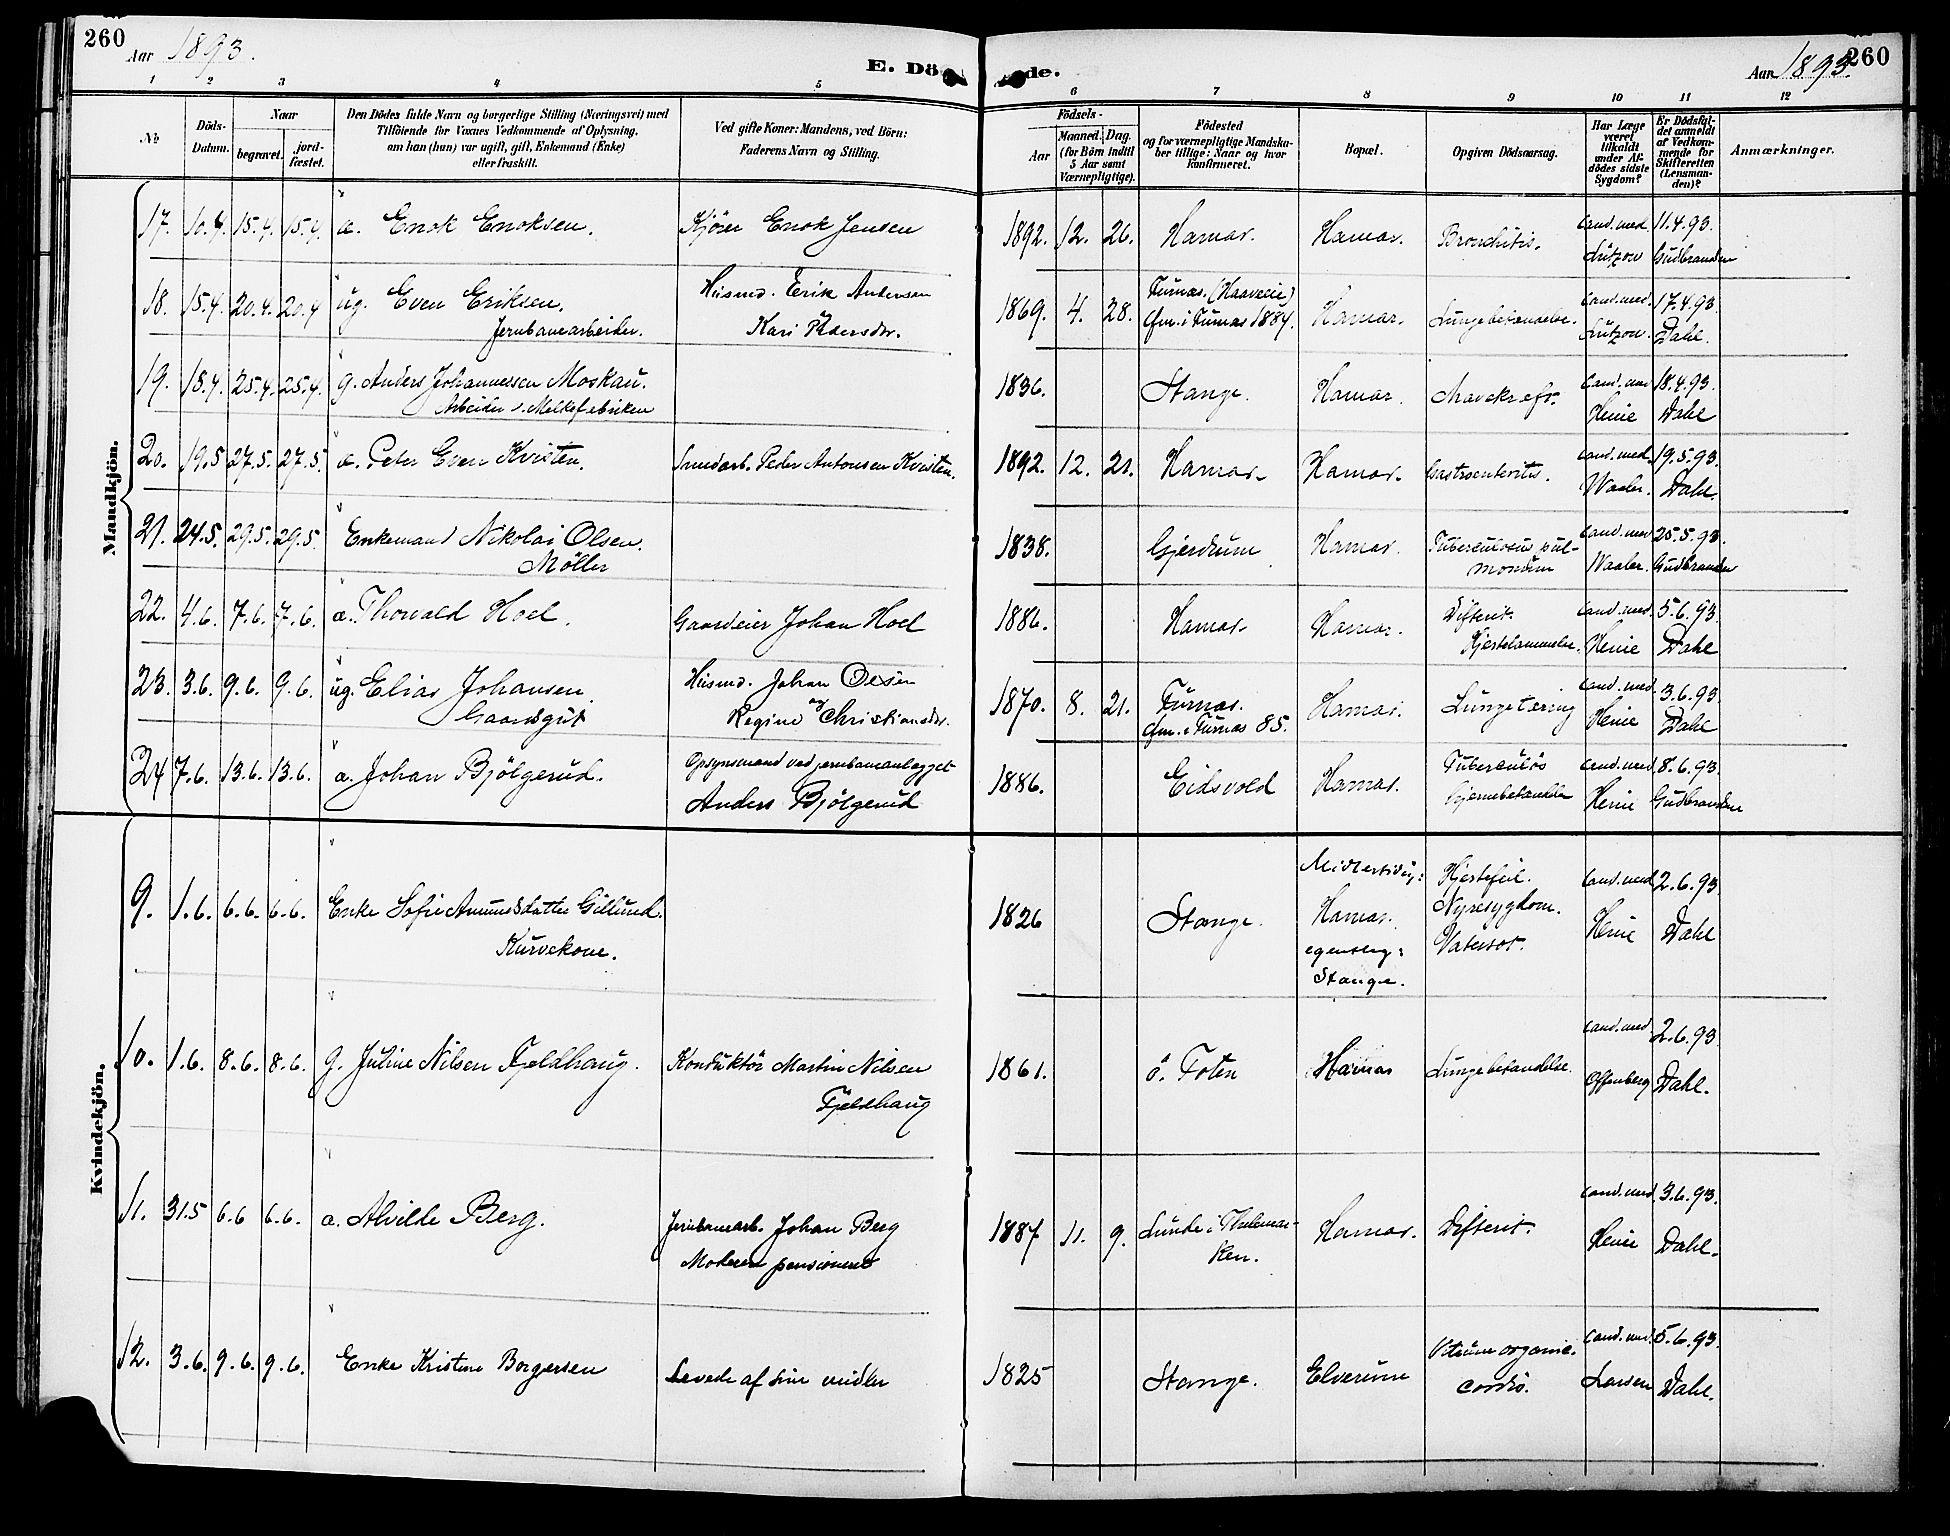 260
Aar 1893.
E. Dö
de.
Aar 1893.
260
1 2 3 4 5 6 7 8 9 10 11 12
No
Döds-
Datum.
Naar
begravet.
jord-
fæstet.
Den Dödes fulde Navn og borgerlige Stilling (Næringsvei) med
Tilföiende for Voxnes Vedkommende af Oplysning,
om han (hun) var ugift, gift, Enkemand (Enke)
eller fraskilt.
Ved gifte Koner: Mandens, ved Börn:
Faderens Navn og Stilling.
Födsels-
Aar
Maaned.
Dag.
(for Börn indtil
5 Aar samt
Værnepligtige).
Födested
og for værnepligtige Mandska-
ber tillige: Naar og hvor
konfirmeret.
Bopæl.
Opgiven Dödsaarsag.
Har Læge
været
tilkaldt
under Af-
dödes sidste
Sygdom?
Er Dödsfal-
det anmeldt
af Vedkom-
mende for
Skifteretten
(Lensman-
den)?
Anmærkninger.
Mandkjön.
17. 10.4. 15.4. 15.4. a. Enok Enoksen. Kjörer Enok Jensen 1892. 12. 26. Hamar. Hamar. Bronchitis. cand. med. 11.4.93.
Lützow Gudbrandsen
18. 15.4. 20.4. 20.4 ug. Even Eriksen. Husmd. Erik Andersen 1869. 4. 28. Furnæs. Hamar. Lungebetændelse. cand. med. 17.4.93
Jernbanearbeider. Kari Pedersdtr. Cfm. i Furnæs 1884. Lützow. Dahl.
19. 18.4. 25.4. 25.4. g. Anders Johannessen Moskau. 1836. Stange. Hamar. Mavekræft. cand. med 18.4.93.
Arbeider v. Melkefabriken Heuie Dahl
20. 19.5 27.5. 27.5. a. Peter Even Kvisten. Smedarb. Peder Antonsen Kvisten. 1892. 12. 21. Hamar. Hamar. Gastroenteritis. cand. med. 19.5.93.
Waaler. Dahl.
21. 24.5. 29.5. 29.5. Enkemand Nikolai Olsen. 1838. Gjerdrum Hamar. Tuberculosis pul- cand. med 25.5.93.
Möller monum Waaler. Gudbrandsen
22. 4.6. 7.6. 7.6. a. Thorvald Hoel. Gaardeier Johan Hoel 1886. Hamar. Hamar. Difterit. cand. med. 5.6.93
Hjertelammelse. Heuie Dahl
23. 3.6. 9.6. 9.6. ug. Elias Johansen Husmd. Johan Olsen 1870. 8. 21. Furnæs. Hamar. Lungetæring cand. med. 3.6.93
Gaardsgut Regine Christiansdtr. Cfm. i Furnæs 85. Heuie Dahl
24 7.6. 13.6. 13.6. a. Johan Bjölgerud. Opsynsmand ved jernbaneanlægget 1886. Eidsvold Hamar. Tuberculös cand. med 8.6.93.
Anders Bjölgerud Hjernebetændelse Heuie Gudbrandsen
Kvindekjön.
9. 1.6. 6.6. 6.6. Enke Sofie Amundsdatter Gillund. 1826 Stange. Midlertidig: Hjertefeil. cand. med 2.6.93.
Kurvekone. Hamar. Nyresygdom. Heuie Dahl
egentlig: Vatersot.
Stange.
10. 1.6. 8.6. 8.6. g. Juline Nilsen Fjeldhaug. Konduktör Martin Nilsen 1861. ö. Toten Hamar Lungebetændelse. cand. med. 2.6.93
Fjeldhaug Offenberg Dahl.
11. 31.5 6.6 6.6. a. Alvilde Berg. Jernbanearb. Johan Berg 1887 11. 9. Lunde i Thelemar- Hamar. Difterit. cand. med 3.6.93.
Moderen pensioneret ken. Heuie Dahl.
12. 3.6. 9.6. 9.6. Enke Kristine Borgersen Levede af sine midler 1825 Stange. Elverum Vitium organic. cand. med. 5.6.93.
cordis. Larsen Dahl.